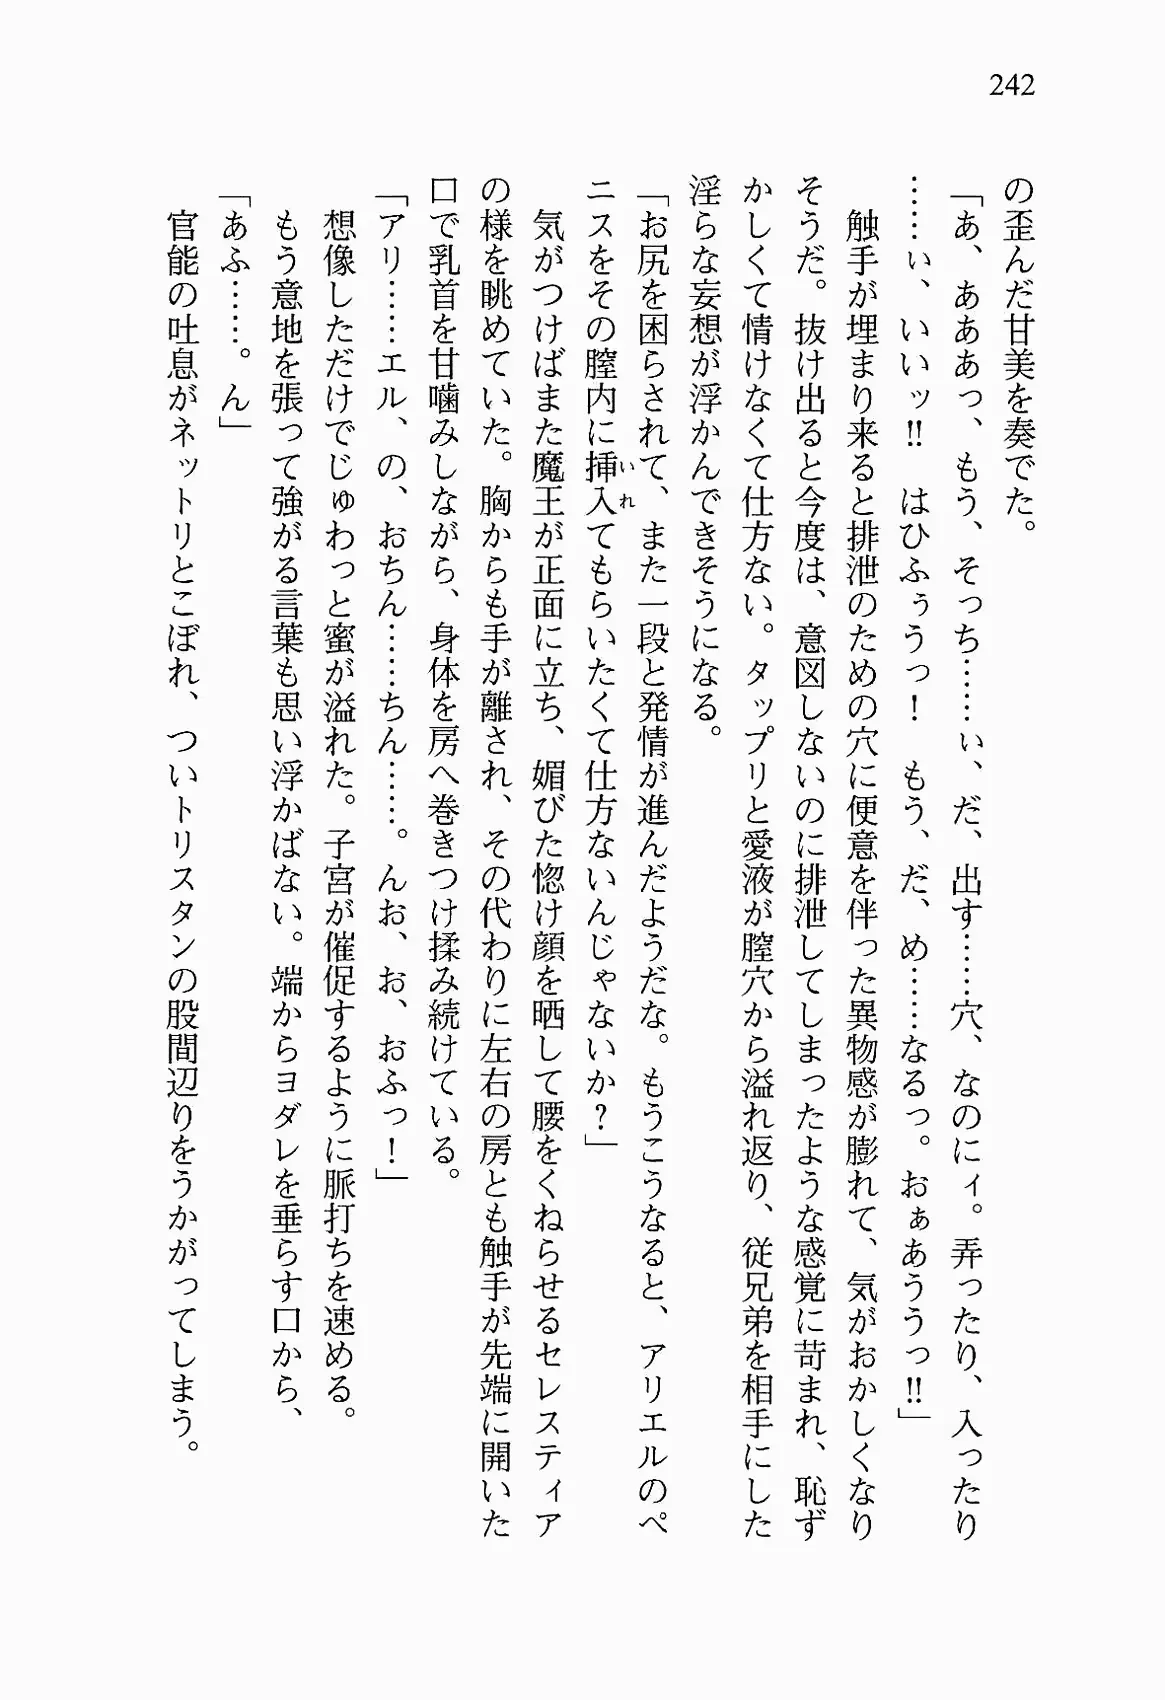 242
の歪んだ甘美を奏でた。
「あ、あああっ、もう、そっち……ぃ、だ、出す……穴、なのにィ。弄ったり、入ったり
……ぃ、いいッ‼　はひふぅうっ！　もう、だ、め……なるっ。おぁあううっ‼」
　触手が埋まり来ると排泄のための穴に便意を伴った異物感が膨れて、気がおかしくなり
そうだ。抜け出ると今度は、意図しないのに排泄してしまったような感覚に苛まれ、恥ず
かしくて情けなくて仕方ない。タップリと愛液が膣穴から溢れ返り、従兄弟を相手にした
淫らな妄想が浮かんできそうになる。
「お尻を困らされて、また一段と発情が進んだようだな。もうこうなると、アリエルのペ
ニスをその膣内に挿入いれてもらいたくて仕方ないんじゃないか？」
　気がつけばまた魔王が正面に立ち、媚びた惚け顔を晒して腰をくねらせるセレスティア
の様を眺めていた。胸からも手が離され、その代わりに左右の房とも触手が先端に開いた
口で乳首を甘噛みしながら、身体を房へ巻きつけ揉み続けている。
「アリ……エル、の、おちん……ちん……。んお、お、おふっ！」
　想像しただけでじゅわっと蜜が溢れた。子宮が催促するように脈打ちを速める。
　もう意地を張って強がる言葉も思い浮かばない。端からヨダレを垂らす口から、
「あふ……。ん」
　官能の吐息がネットリとこぼれ、ついトリスタンの股間辺りをうかがってしまう。